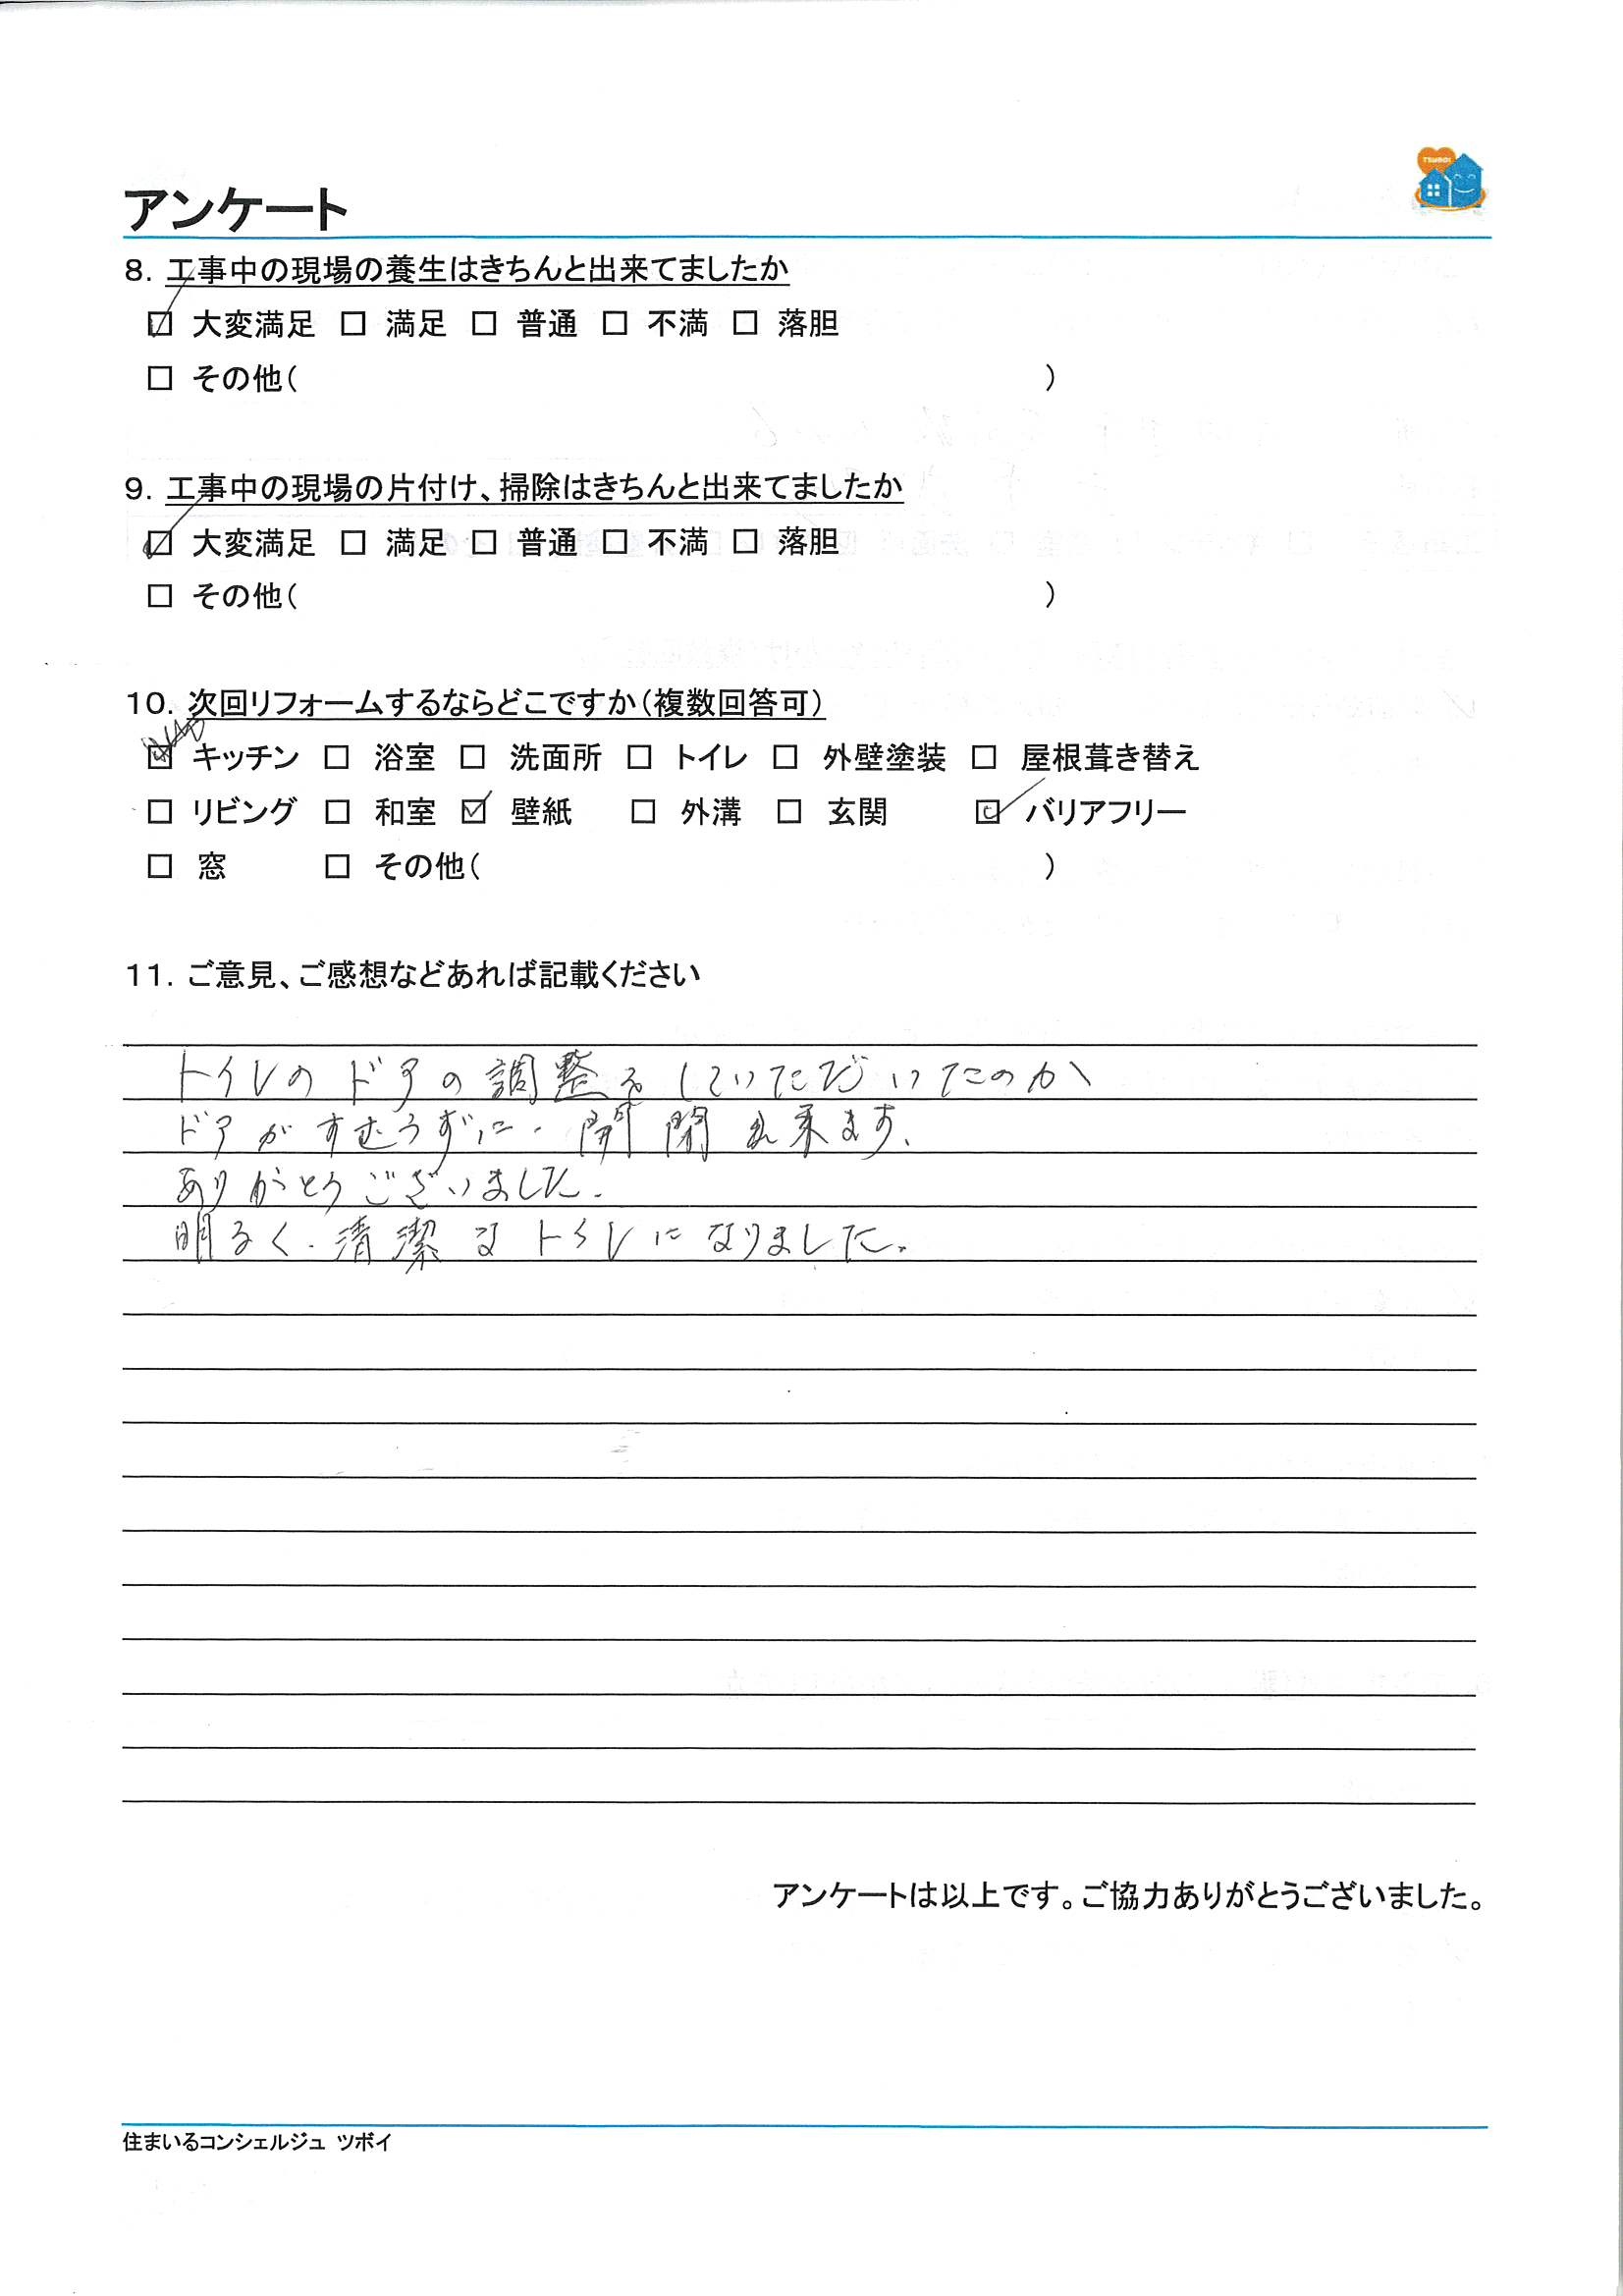 TSUBOI
アンケート
8. 工事中の現場の養生はきちんと出来てましたか
☑ 大変満足 □ 満足 □ 普通 □ 不満 □ 落胆
□ その他( )
9. 工事中の現場の片付け、掃除はきちんと出来てましたか
☑ 大変満足 □ 満足 □ 普通 □ 不満 □ 落胆
□ その他( )
10. 次回リフォームするならどこですか(複数回答可)
□ キッチン □ 浴室 □ 洗面所 □ トイレ □ 外壁塗装 □ 屋根葺き替え
□ リビング □ 和室 ☑ 壁紙 □ 外溝 □ 玄関 ☑ バリアフリー
□ 窓 □ その他( )
11. ご意見、ご感想などあれば記載ください
トイレのドアの調整をしていただいたのか、
ドアがすむうずに、開閉出来ます。
ありがとうございました。
明るく、清潔なトイレになりました。
アンケートは以上です。ご協力ありがとうございました。
住まいるコンシェルジュ ツボイ